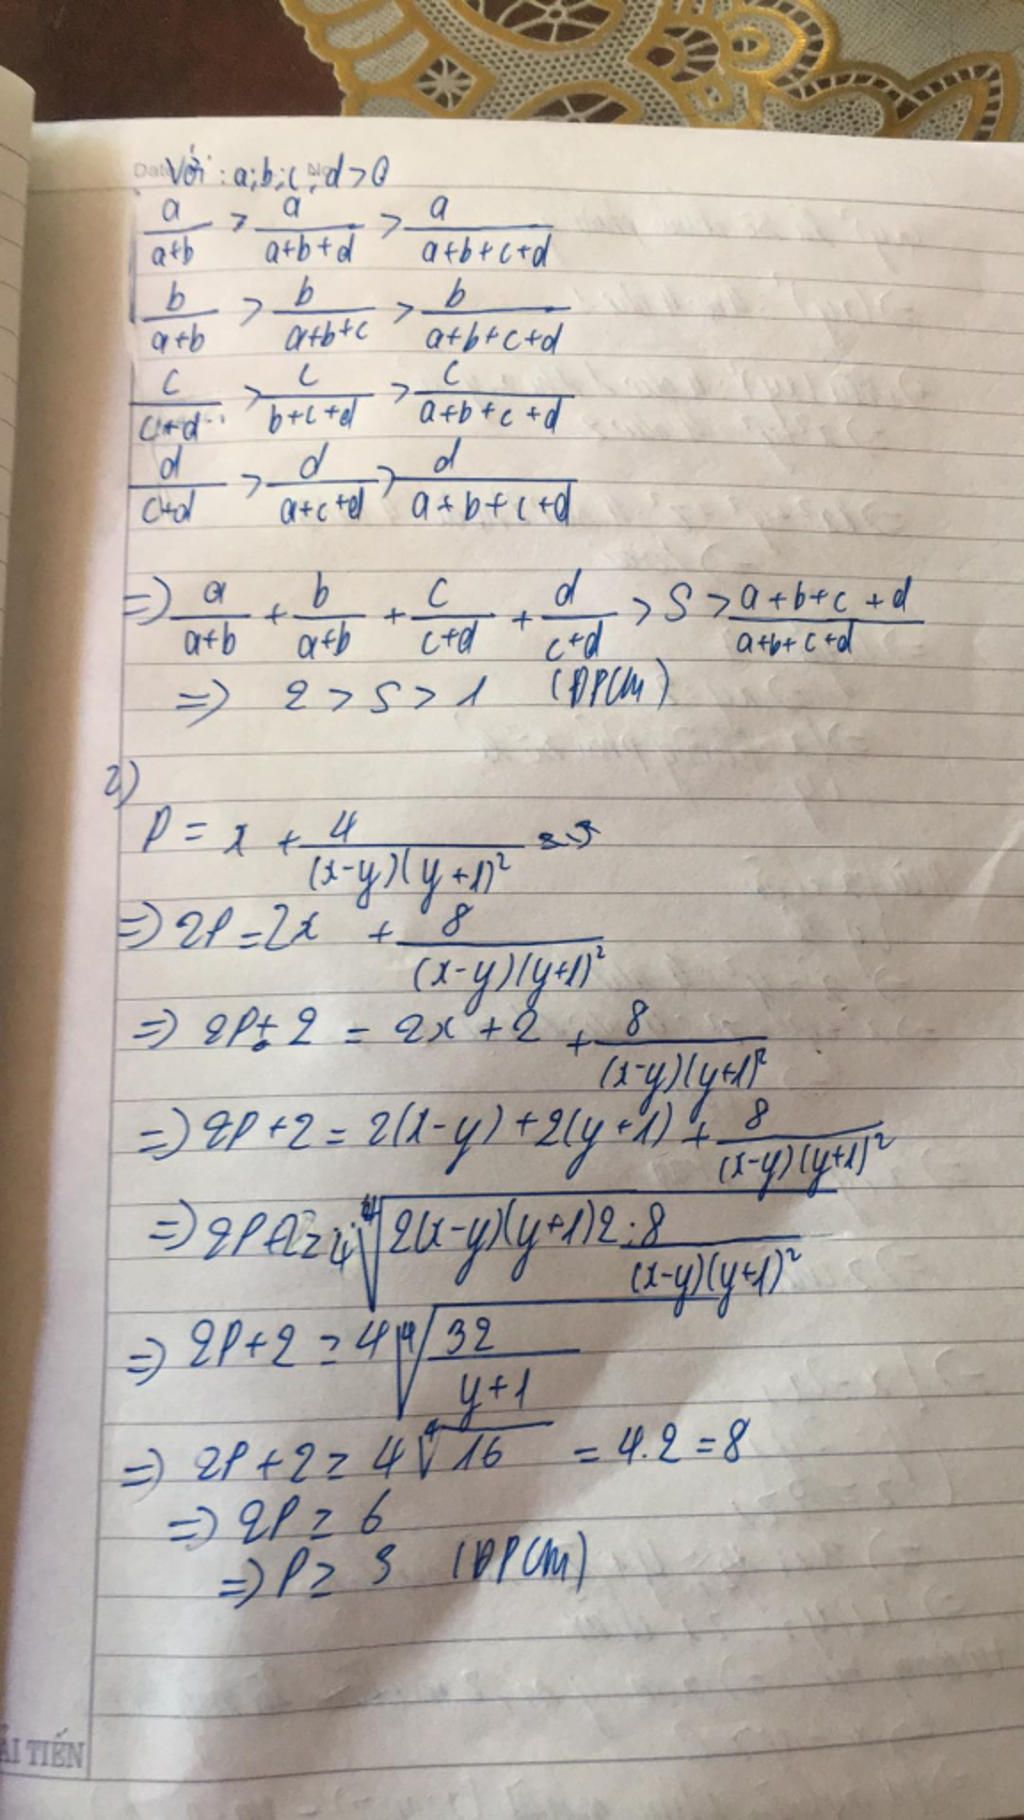 Với : a;b;c;d > 0
a/(a+b) > a/(a+b+d) > a/(a+b+c+d)
b/(a+b) > b/(a+b+c) > b/(a+b+c+d)
c/(c+d) > c/(b+c+d) > c/(a+b+c+d)
d/(c+d) > d/(a+c+d) > d/(a+b+c+d)
=> a/(a+b) + b/(a+b) + c/(c+d) + d/(c+d) > S > (a+b+c+d)/(a+b+c+d)
=> 2 > S > 1 (ĐPCM)
2)
P = x + 4/((x-y)(y+1)²)
=> 2P = 2x + 8/((x-y)(y+1)²)
=> 2P + 2 = 2x + 2 + 8/((x-y)(y+1)²)
=> 2P + 2 = 2(x-y) + 2(y+1) + 8/((x-y)(y+1)²)
=> 2P + 2 ≥ 4 ⁴√(2(x-y)(y+1)2.8/((x-y)(y+1)²))
=> 2P + 2 ≥ 4 ⁴√(32/(y+1))
=> 2P + 2 ≥ 4 ⁴√16 = 4.2 = 8
=> 2P ≥ 6
=> P ≥ 3 (ĐPCM)
TIẾN